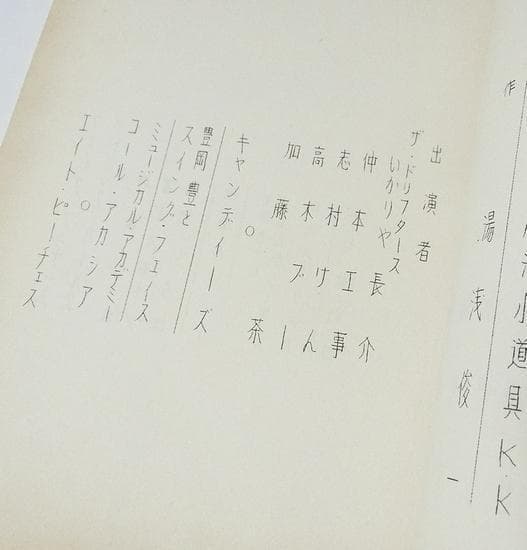 小道具K.K
作 湯浅俊一
出演者
ザ・ドリフターズ
いかりや長介
仲本工事
志村けん
高木ブー
加藤茶
○
キャンディーズ
豊岡豊と
スイング・フェイス
ミュージカル・アカデミー
コール・アカシア
○
エイト・ピーチェス